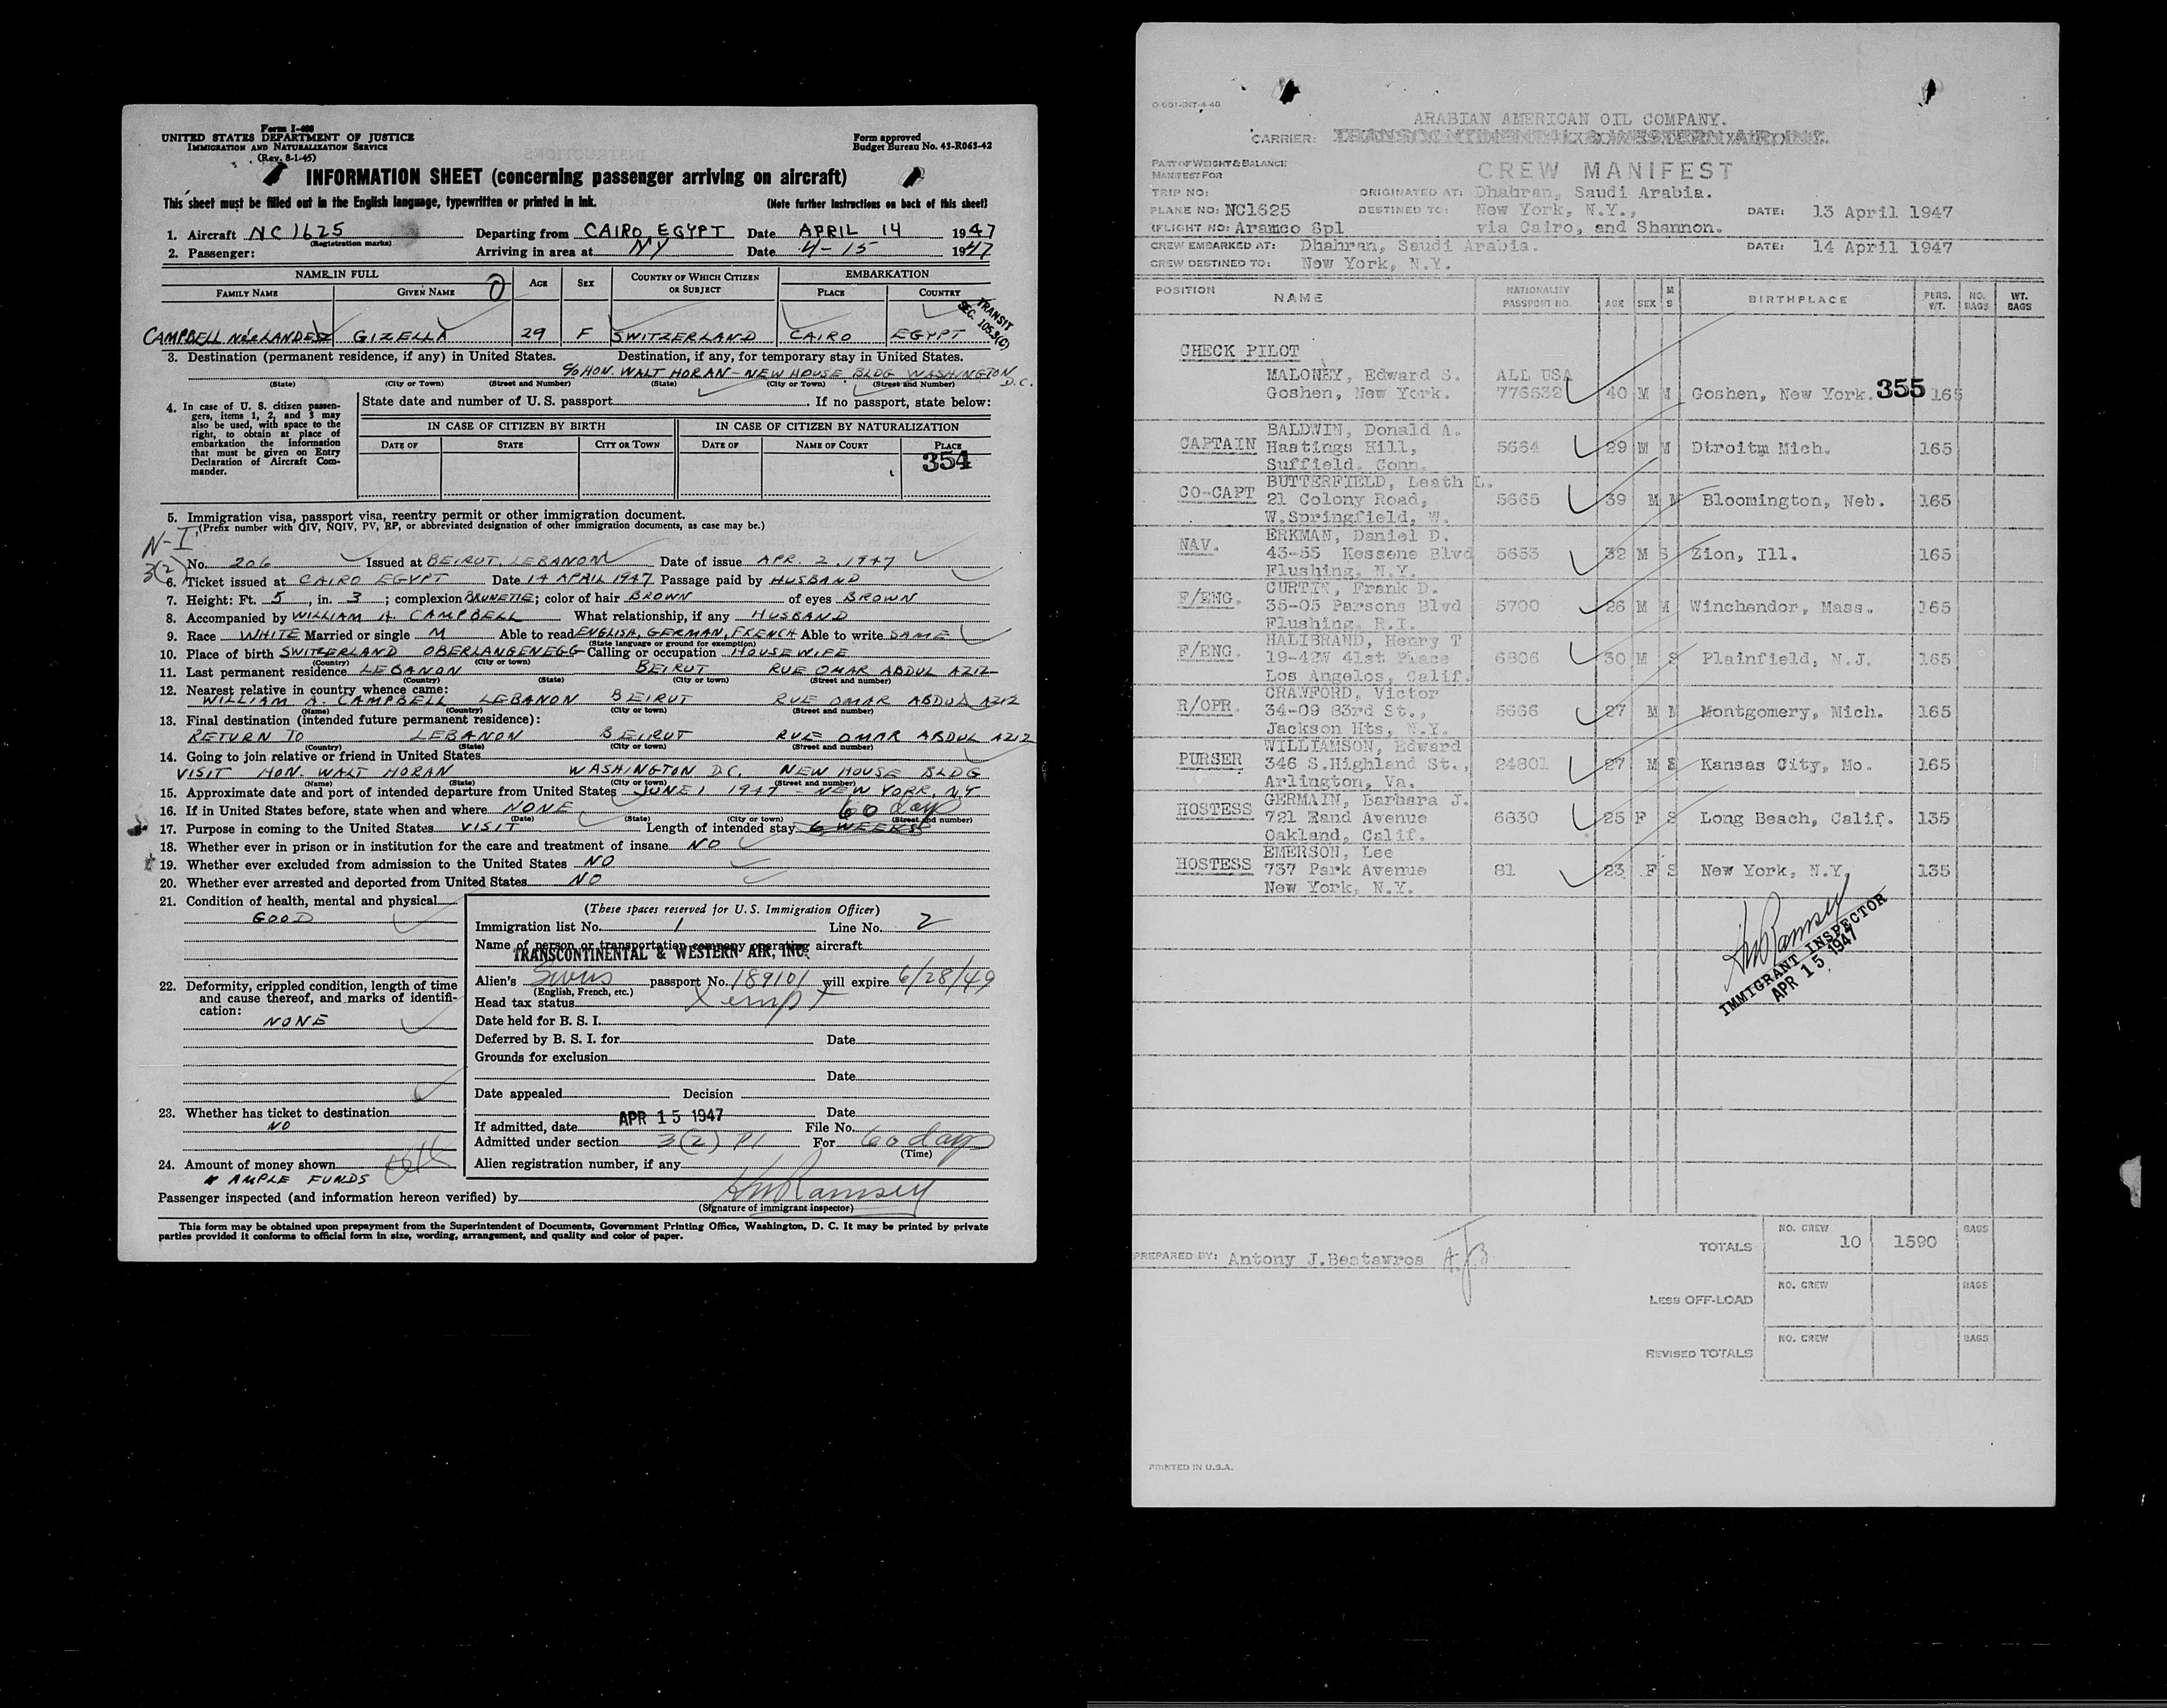 Form I-466
UNITED STATES DEPARTMENT OF JUSTICE
IMMIGRATION AND NATURALIZATION SERVICE
(Rev. 8-1-45)
Form approved
Budget Bureau No. 43-R063-42
INFORMATION SHEET (concerning passenger arriving on aircraft)
This sheet must be filled out in the English language, typewritten or printed in ink. (Note further instructions on back of this sheet)
1. Aircraft NC 1625 Departing from CAIRO, EGYPT Date APRIL 14 1947
(Registration marks)
2. Passenger: Arriving in area at NY Date 4-15 1947
NAME IN FULL AGE SEX COUNTRY OF WHICH CITIZEN OR SUBJECT EMBARKATION
FAMILY NAME GIVEN NAME PLACE COUNTRY
TRANSIT
SEC. 105.3(C)
CAMPBELL Née LANDESZ GIZELLA 29 F SWITZERLAND CAIRO EGYPT
3. Destination (permanent residence, if any) in United States. Destination, if any, for temporary stay in United States.
c/o HON. WALT HORAN - NEW HOUSE BLDG WASHINGTON D.C.
(State) (City or Town) (Street and Number) (State) (City or Town) (Street and Number)
4. In case of U. S. citizen passengers, items 1, 2, and 3 may also be used, with space to the right, to obtain at place of embarkation the information that must be given on Entry Declaration of Aircraft Commander.
State date and number of U. S. passport If no passport, state below:
IN CASE OF CITIZEN BY BIRTH IN CASE OF CITIZEN BY NATURALIZATION
DATE OF STATE CITY OR TOWN DATE OF NAME OF COURT PLACE
354
5. Immigration visa, passport visa, reentry permit or other immigration document.
(Prefix number with QIV, NQIV, PV, RP, or abbreviated designation of other immigration documents, as case may be.)
N-I
3(2)
No. 206 Issued at BEIRUT, LEBANON Date of issue APR. 2, 1947
6. Ticket issued at CAIRO EGYPT Date 14 APRIL 1947 Passage paid by HUSBAND
7. Height: Ft. 5, in. 3; complexion BRUNETTE; color of hair BROWN of eyes BROWN
8. Accompanied by WILLIAM A. CAMPBELL What relationship, if any HUSBAND
9. Race WHITE Married or single M Able to read ENGLISH, GERMAN, FRENCH Able to write SAME
(State language or ground for exemption)
10. Place of birth SWITZERLAND OBERLANGENEGG Calling or occupation HOUSEWIFE
(Country) (City or town)
11. Last permanent residence LEBANON BEIRUT RUE OMAR ABDUL AZIZ
(Country) (State) (City or town) (Street and number)
12. Nearest relative in country whence came:
WILLIAM A. CAMPBELL LEBANON BEIRUT RUE OMAR ABDUL AZIZ
(Name) (Country) (City or town) (Street and number)
13. Final destination (intended future permanent residence):
RETURN TO LEBANON BEIRUT RUE OMAR ABDUL AZIZ
(Country) (State) (City or town) (Street and number)
14. Going to join relative or friend in United States
VISIT HON. WALT HORAN WASHINGTON D.C. NEW HOUSE BLDG
(Name) (State) (City or town) (Street and number)
15. Approximate date and port of intended departure from United States JUNE 1 1947 - NEW YORK, NY
16. If in United States before, state when and where NONE 60 days
(Date) (State) (City or town) (Street and number)
17. Purpose in coming to the United States VISIT Length of intended stay 6 WEEKS
18. Whether ever in prison or in institution for the care and treatment of insane NO
19. Whether ever excluded from admission to the United States NO
20. Whether ever arrested and deported from United States NO
21. Condition of health, mental and physical
GOOD
22. Deformity, crippled condition, length of time and cause thereof, and marks of identification:
NONE
23. Whether has ticket to destination
NO
24. Amount of money shown
AMPLE FUNDS
(These spaces reserved for U. S. Immigration Officer)
Immigration list No. 1 Line No. 2
Name of person or transportation company operating aircraft
TRANSCONTINENTAL & WESTERN AIR, INC.
Alien's Swiss passport No. 189101 will expire 6/28/49
(English, French, etc.)
Head tax status Xempt
Date held for B. S. I.
Deferred by B. S. I. for Date
Grounds for exclusion
Date
Date appealed Decision
Date
If admitted, date APR 15 1947 File No.
Admitted under section 3(2) P1 For 60 days
(Time)
Alien registration number, if any
Passenger inspected (and information hereon verified) by HW Ramsey
(Signature of immigrant inspector)
This form may be obtained upon prepayment from the Superintendent of Documents, Government Printing Office, Washington, D. C. It may be printed by private
parties provided it conforms to official form in size, wording, arrangement, and quality and color of paper.
O-001-INT-4-46
ARABIAN AMERICAN OIL COMPANY.
CARRIER: TRANSCONTINENTAL & WESTERN AIR, INC.
PART OF WEIGHT & BALANCE
MANIFEST FOR
CREW MANIFEST
TRIP NO: ORIGINATED AT: Dhahran, Saudi Arabia.
PLANE NO: NC1625 DESTINED TO: New York, N.Y., DATE: 13 April 1947
(FLIGHT NO: Aramco Spl via Cairo, and Shannon.
CREW EMBARKED AT: Dhahran, Saudi Arabia. DATE: 14 April 1947
CREW DESTINED TO: New York, N.Y.
POSITION NAME NATIONALITY PASSPORT NO. AGE SEX M S BIRTHPLACE PERS. WT. NO. BAGS WT. BAGS
CHECK PILOT
MALONEY, Edward S. ALL USA
Goshen, New York. 776532 40 M M Goshen, New York. 355 165
BALDWIN, Donald A.
CAPTAIN Hastings Hill, 5664 29 M M Dtroitm Mich. 165
Suffield, Conn.
BUTTERFIELD, Leath L.
CO-CAPT 21 Colony Road, 5665 39 M M Bloomington, Neb. 165
W.Springfield, W.
ERKMAN, Daniel D.
NAV. 43-55 Kessene Blvd 5653 32 M S Zion, Ill. 165
Flushing, N.Y.
CURTIN, Frank D.
F/ENG. 35-05 Parsons Blvd 5700 26 M M Winchendor, Mass. 165
Flushing, R.I.
HALIBRAND, Henry T
F/ENG. 19-42W 41st Place 6806 30 M S Plainfield, N.J. 165
Los Angelos, Calif.
CRAWFORD, Victor
R/OPR. 34-09 83rd St., 5666 27 M M Montgomery, Mich. 165
Jackson Hts, N.Y.
WILLIAMSON, Edward
PURSER 346 S.Highland St., 24801 27 M S Kansas City, Mo. 165
Arlington, Va.
GERMAIN, Barbara J.
HOSTESS 721 Rand Avenue 6830 25 F S Long Beach, Calif. 135
Oakland, Calif.
EMERSON, Lee
HOSTESS 737 Park Avenue 81 23 F S New York, N.Y. 135
New York, N.Y.
HW Ramsey
IMMIGRANT INSPECTOR
APR 15 1947
NO. CREW BAGS
TOTALS 10 1590
PREPARED BY: Antony J.Bestawros A.J.B
NO. CREW BAGS
LESS OFF-LOAD
NO. CREW BAGS
REVISED TOTALS
PRINTED IN U.S.A.